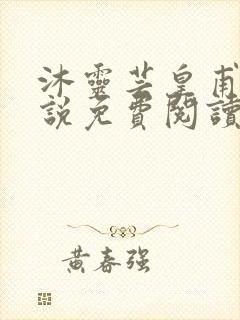 沐靈芸皇甫
說免費閱讀
黃春强